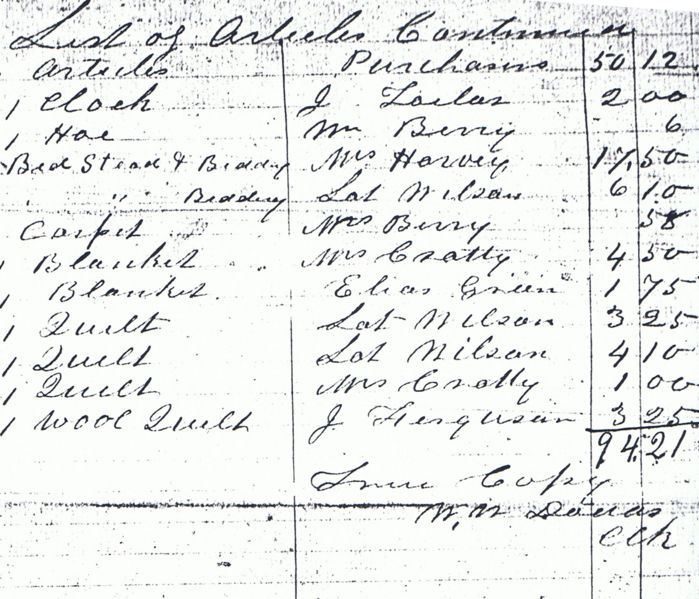 List of Articles Continued
Articles Purchasers 50 12
1 Clock J 2 00
1 Hoe Wm Berry 6
Bed Stead & Bedding Mrs Harvey 17.50
" Bedding Lot Wilson 6 10
Carpet Mrs Berry 58
1 Blanket Mrs Cratty 4 50
1 Blanket Elias Green 1 75
1 Quilt Lot Wilson 3 25
1 Quilt Lot Wilson 4 10
1 Quilt Mrs Cratty 1 00
1 Wool Quilt J Ferguson 3 25
94.21
True Copy
W. W
Clk